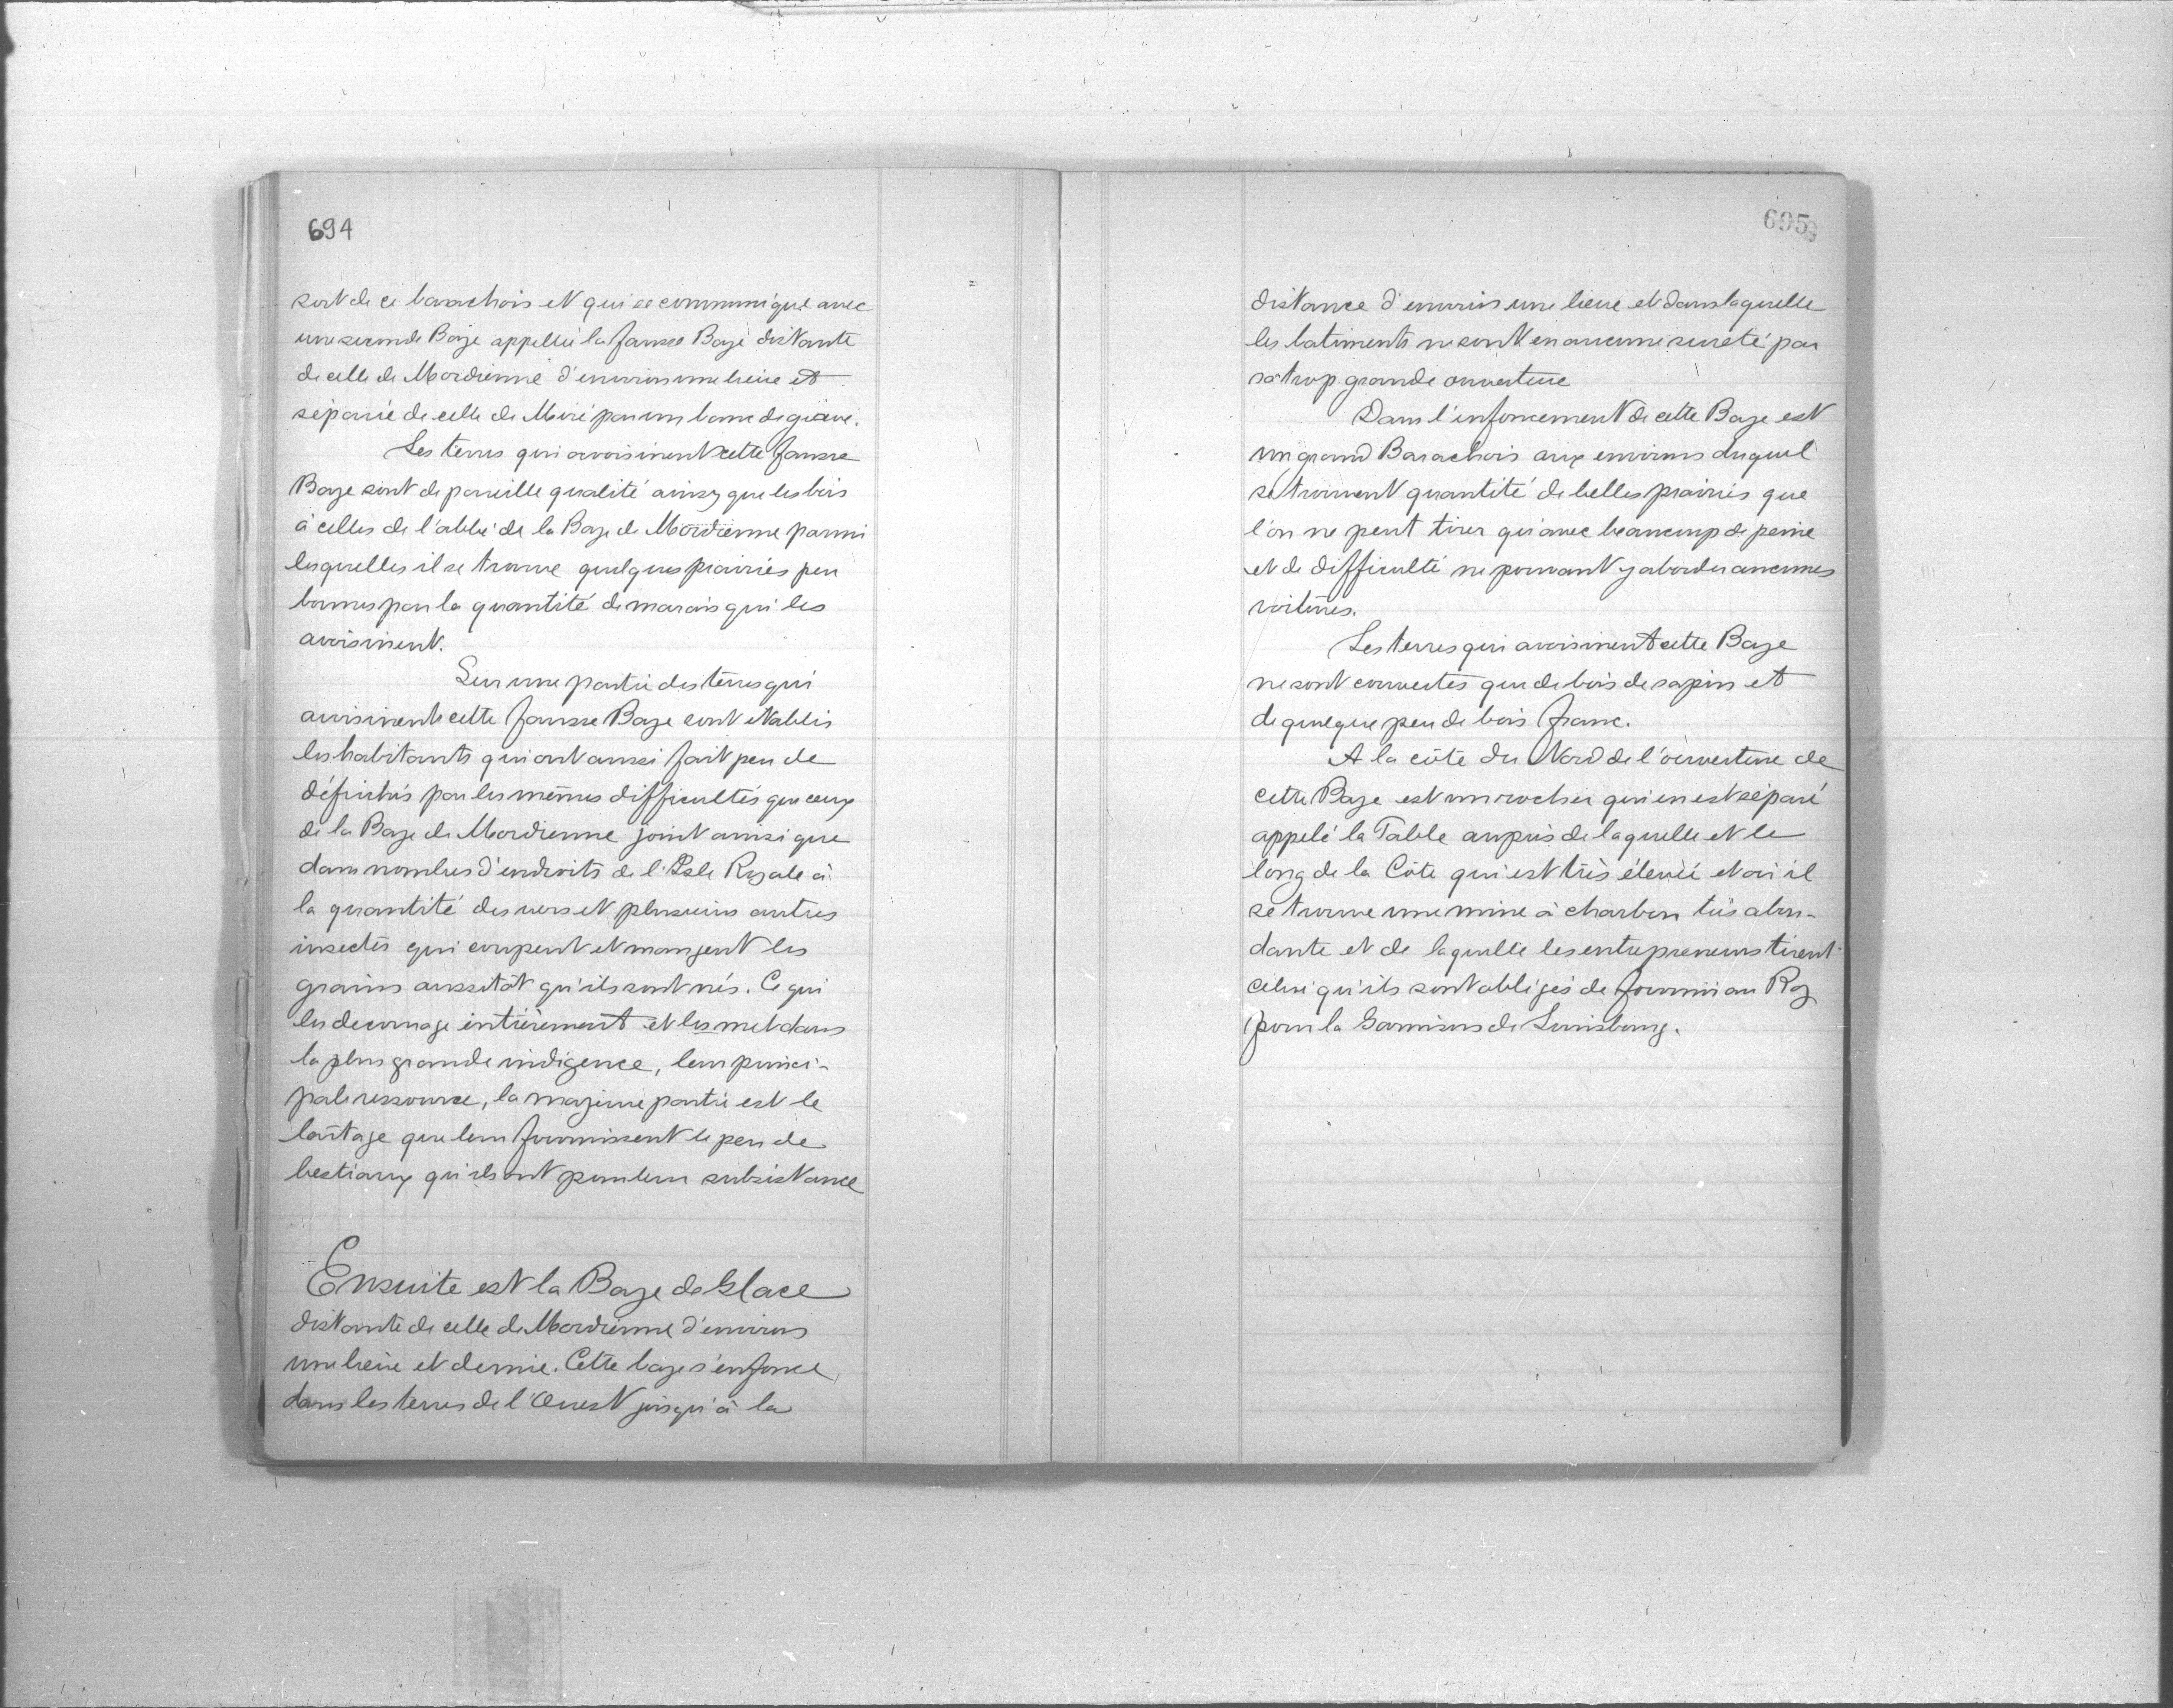 694
sort de ce barachois et qui se communique avec
une seconde Baye appellée la fausse Baye distante
de celle de Mordienne d'environ une lieue et
séparée de celle de Miré par un banc de grave.
Les terres qui avoisinent cette fausse
Baye sont de pareille qualité ainsy que les bois
à celles de l'abbé de la Baye de Mordienne parmi
lesquelles il se trouve quelques prairies peu
bonnes par la quantité de marais qui les
avoisinent.
Sur une partie des terres qui
avoisinent cette fausse Baye sont établis
les habitants qui ont aussi fait peu de
défrichés par les mêmes difficultés que ceux
de la Baye de Mordienne joint ainsi que
dans nombres d'endroits de l'Isle Royale à
la quantité des vers et plusieurs autres
insectes qui coupent et mangent les
grains aussitôt qu'ils sont nés. Ce qui
les decourage entièrement et les met dans
la plus grande indigence, leur princi-
pale ressource, la majeure partie est le
laitage que leur fournissent le peu de
bestiaux qu'ils ont pour leur subsistance
Ensuite est la Baye de Glace
distante de celle de Mordienne d'environs
une lieue et demie. Cette baye s'enfonce
dans les terres de l'Ouest jusqu'à la
695
distance d'environ une lieue et dans laquelle
les batiments ne sont en aucune sureté par
sa trop grande ouverture
Dans l'enfoncement de cette Baye est
un grand Barachois aux environs duquel
se trouvent quantité de belles prairies que
l'on ne peut tirer qu'avec beaucoup de peine
et de difficulté ne pouvant y aborder aucunes
voitures.
Les terres qui avoisinent cette Baye
ne sont couvertes que de bois de sapin et
de quelque peu de bois franc.
A la côte du Nord de l'ouverture de
cette Baye est un rocher qui en est séparé
appelé la Table auprès de laquelle et le
long de la Côte qui est très élevée et où il
se trouve une mine à charbon très abon-
dante et de laquelle les entrepreneurs tirent
celui qu'ils sont obligés de fournir au Roy
pour la Garnison de Louisbourg.